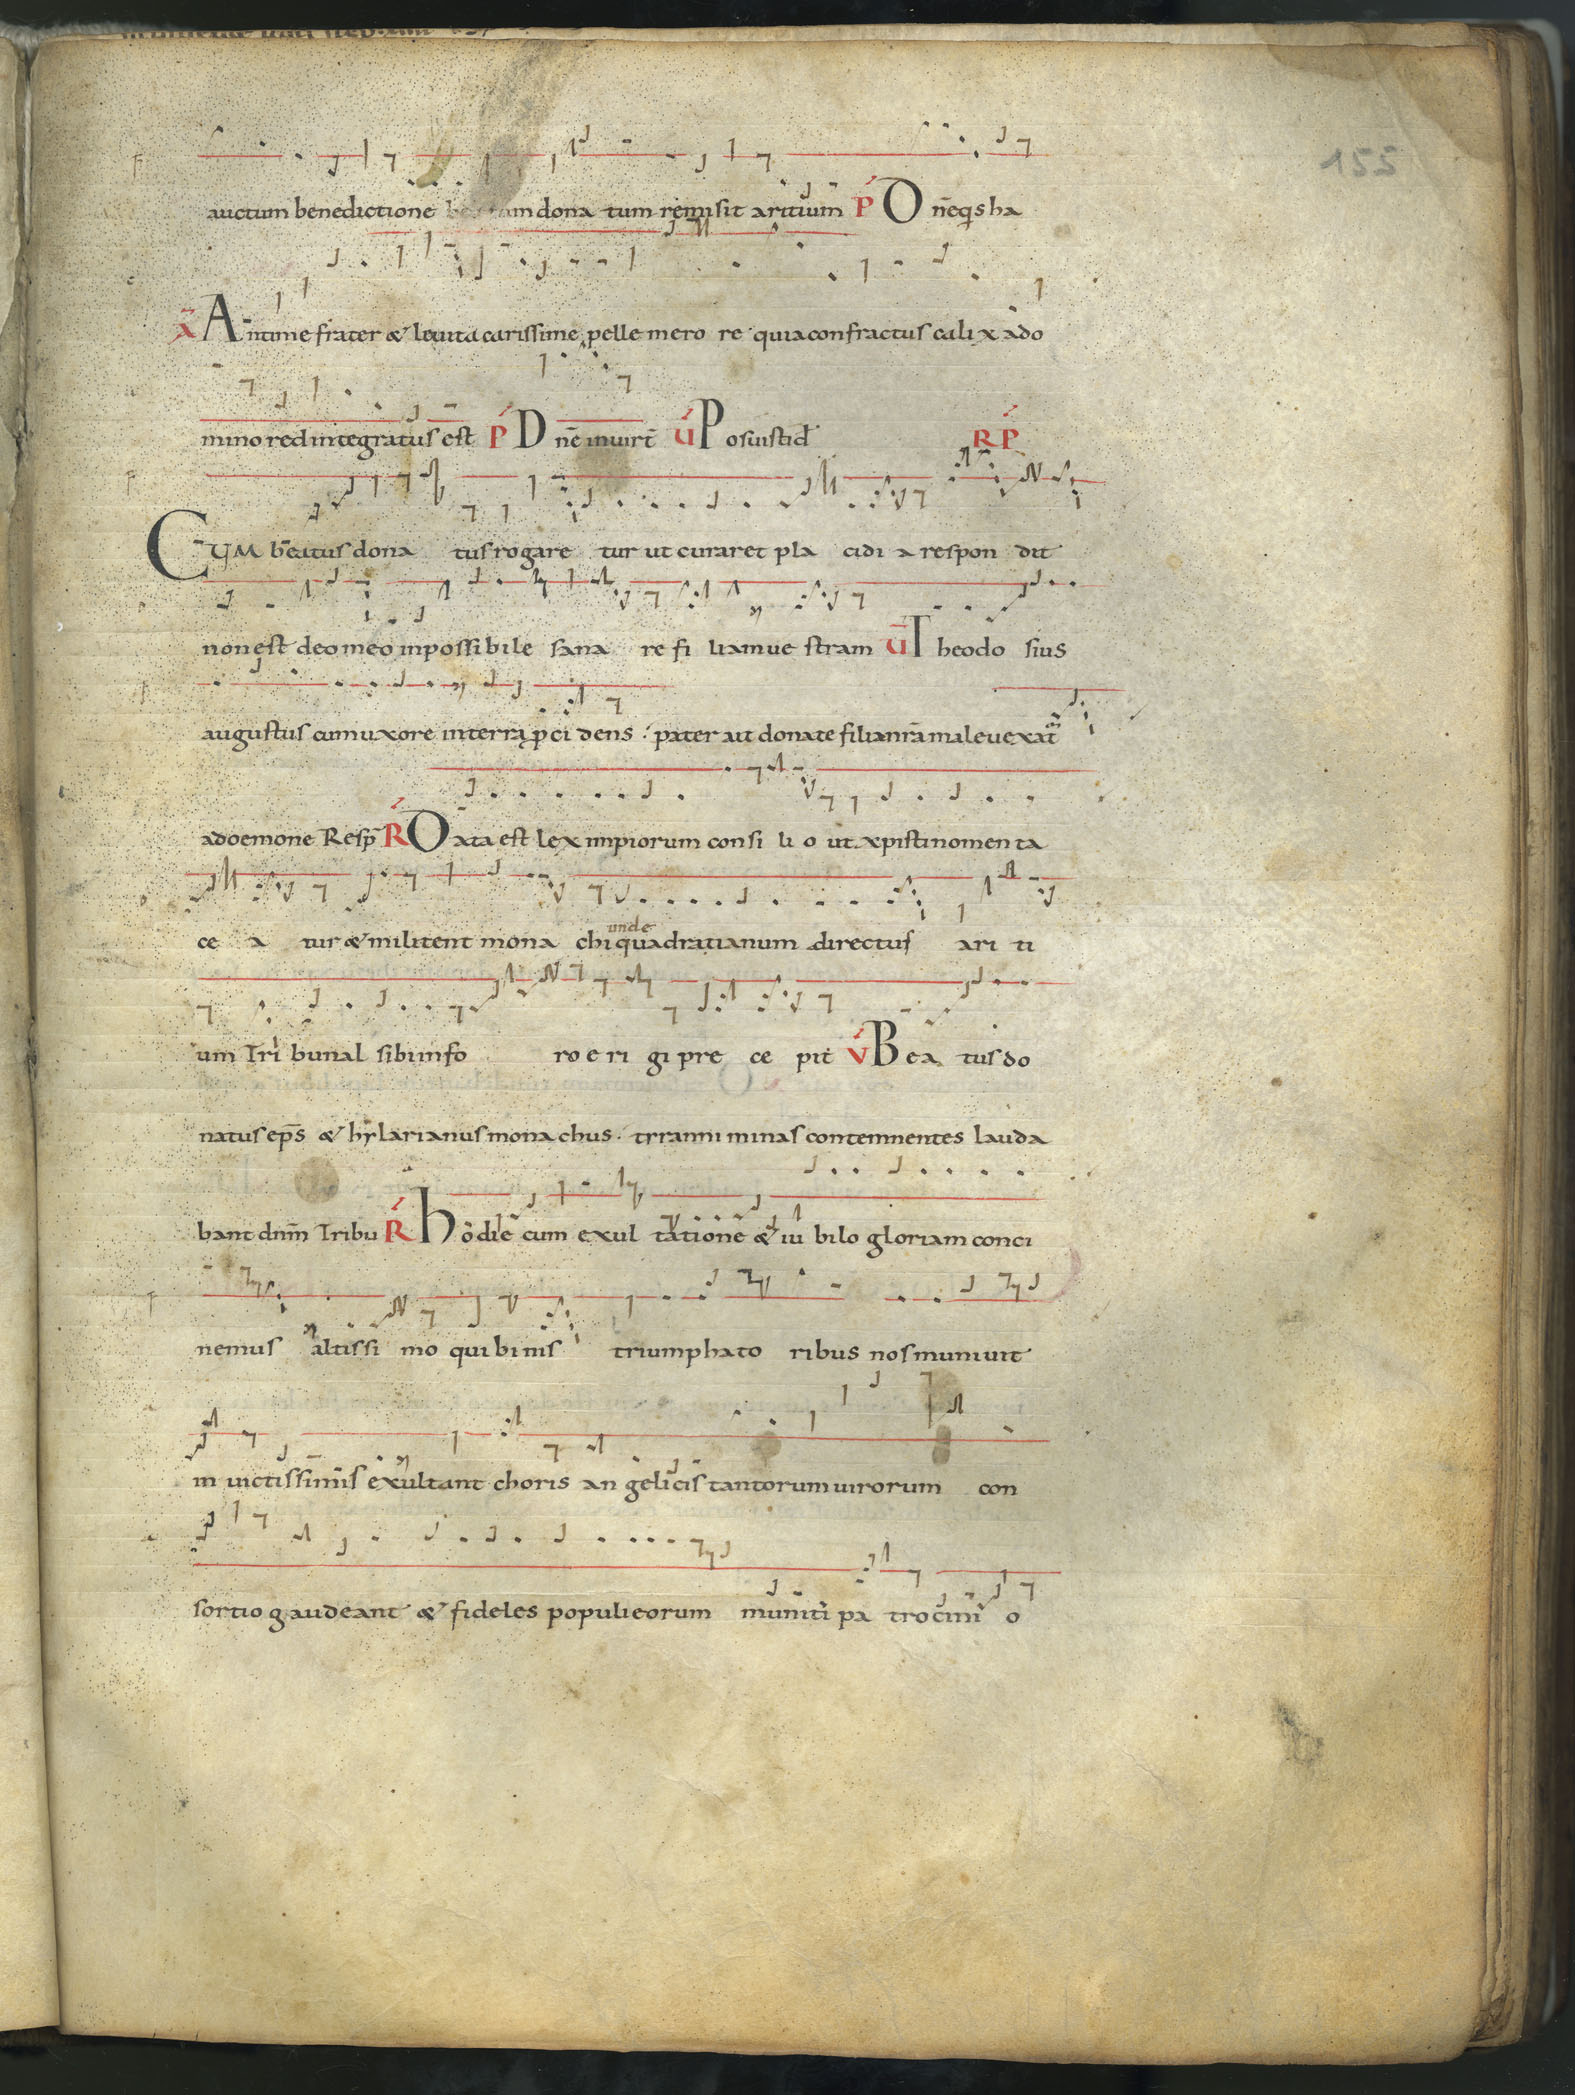 155
auctum benedictione beatum dona tum remisit aritium P D n̄e q̄s ha
A Antime frater & leuita carissime pelle mero re quia confractus calix ado
mino redintegratus est P D nē inuirt̄ V Posuistid̄
R P
CUM beatus dona tus rogare tur ut curaret pla cidi a respon dit
non est deo meo inpossibile sana re fi liam ue stram V Theodo sius
augustus cum uxore interra p̄ci dens. pater ait donate filiam nr̄a male uexat̄
a doemone Resp̄ R Data est lex impiorum consi li o ut xpisti nomen ta
unde
ce a tur & militent mona chi quadratianum directus ari ti
um Tri bunal sibi info ro e ri gi pre ce pit V Bea tus do
natus ep̄s & hylarianus monachus. tyranni minas contemnentes lauda
bant dnm̄ Tribu R hodie cum exul tatione & iu bilo gloriam conci
nemus altissi mo qui binis triumphato ribus nos muniuit
in uictissimis exultant choris an gelicis tantorum uirorum con
sortio gaudeant & fideles populi eorum muniti pa trocini o